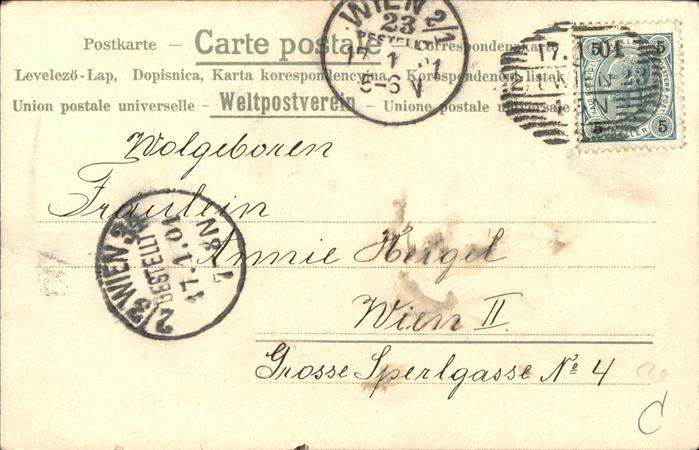 Postkarte – Carte postale – Correspondenzkarte
Levelező-Lap, Dopisnica, Karta korespondencyjna, Korespondenční listek
Union postale universelle – Weltpostverein – Unione postale universale
WIEN 2/1
23
BESTELLT
17 1 01
5-6 V
17. 01
5 5
5 5
HELLER
Wolgeboren
Fräulein
Annie Heigel
Wien II.
Grosse Sperlgasse No 4
2/3 WIEN 2
BESTELLT
17.1.01
7-8 N
C